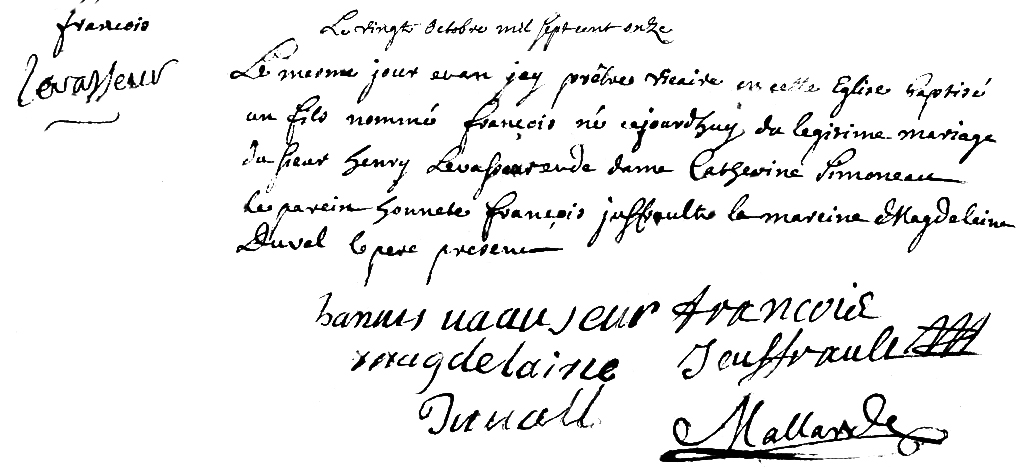 françois
Levasseur
Le vingt Octobre mil sept cent onze
Le mesme jour evan jay prêbtre vicaire en cette Eglise baptisé
un fils nommé françois né cejourdhuy du legitime mariage
du sieur henry Levasseur et de dame Catherine Simoneau
le parein honnete françois jussraulte la mareine Magdelaine
Duval le pere present
francois
magdelaine Jeuffrault
Duuall Mallarde